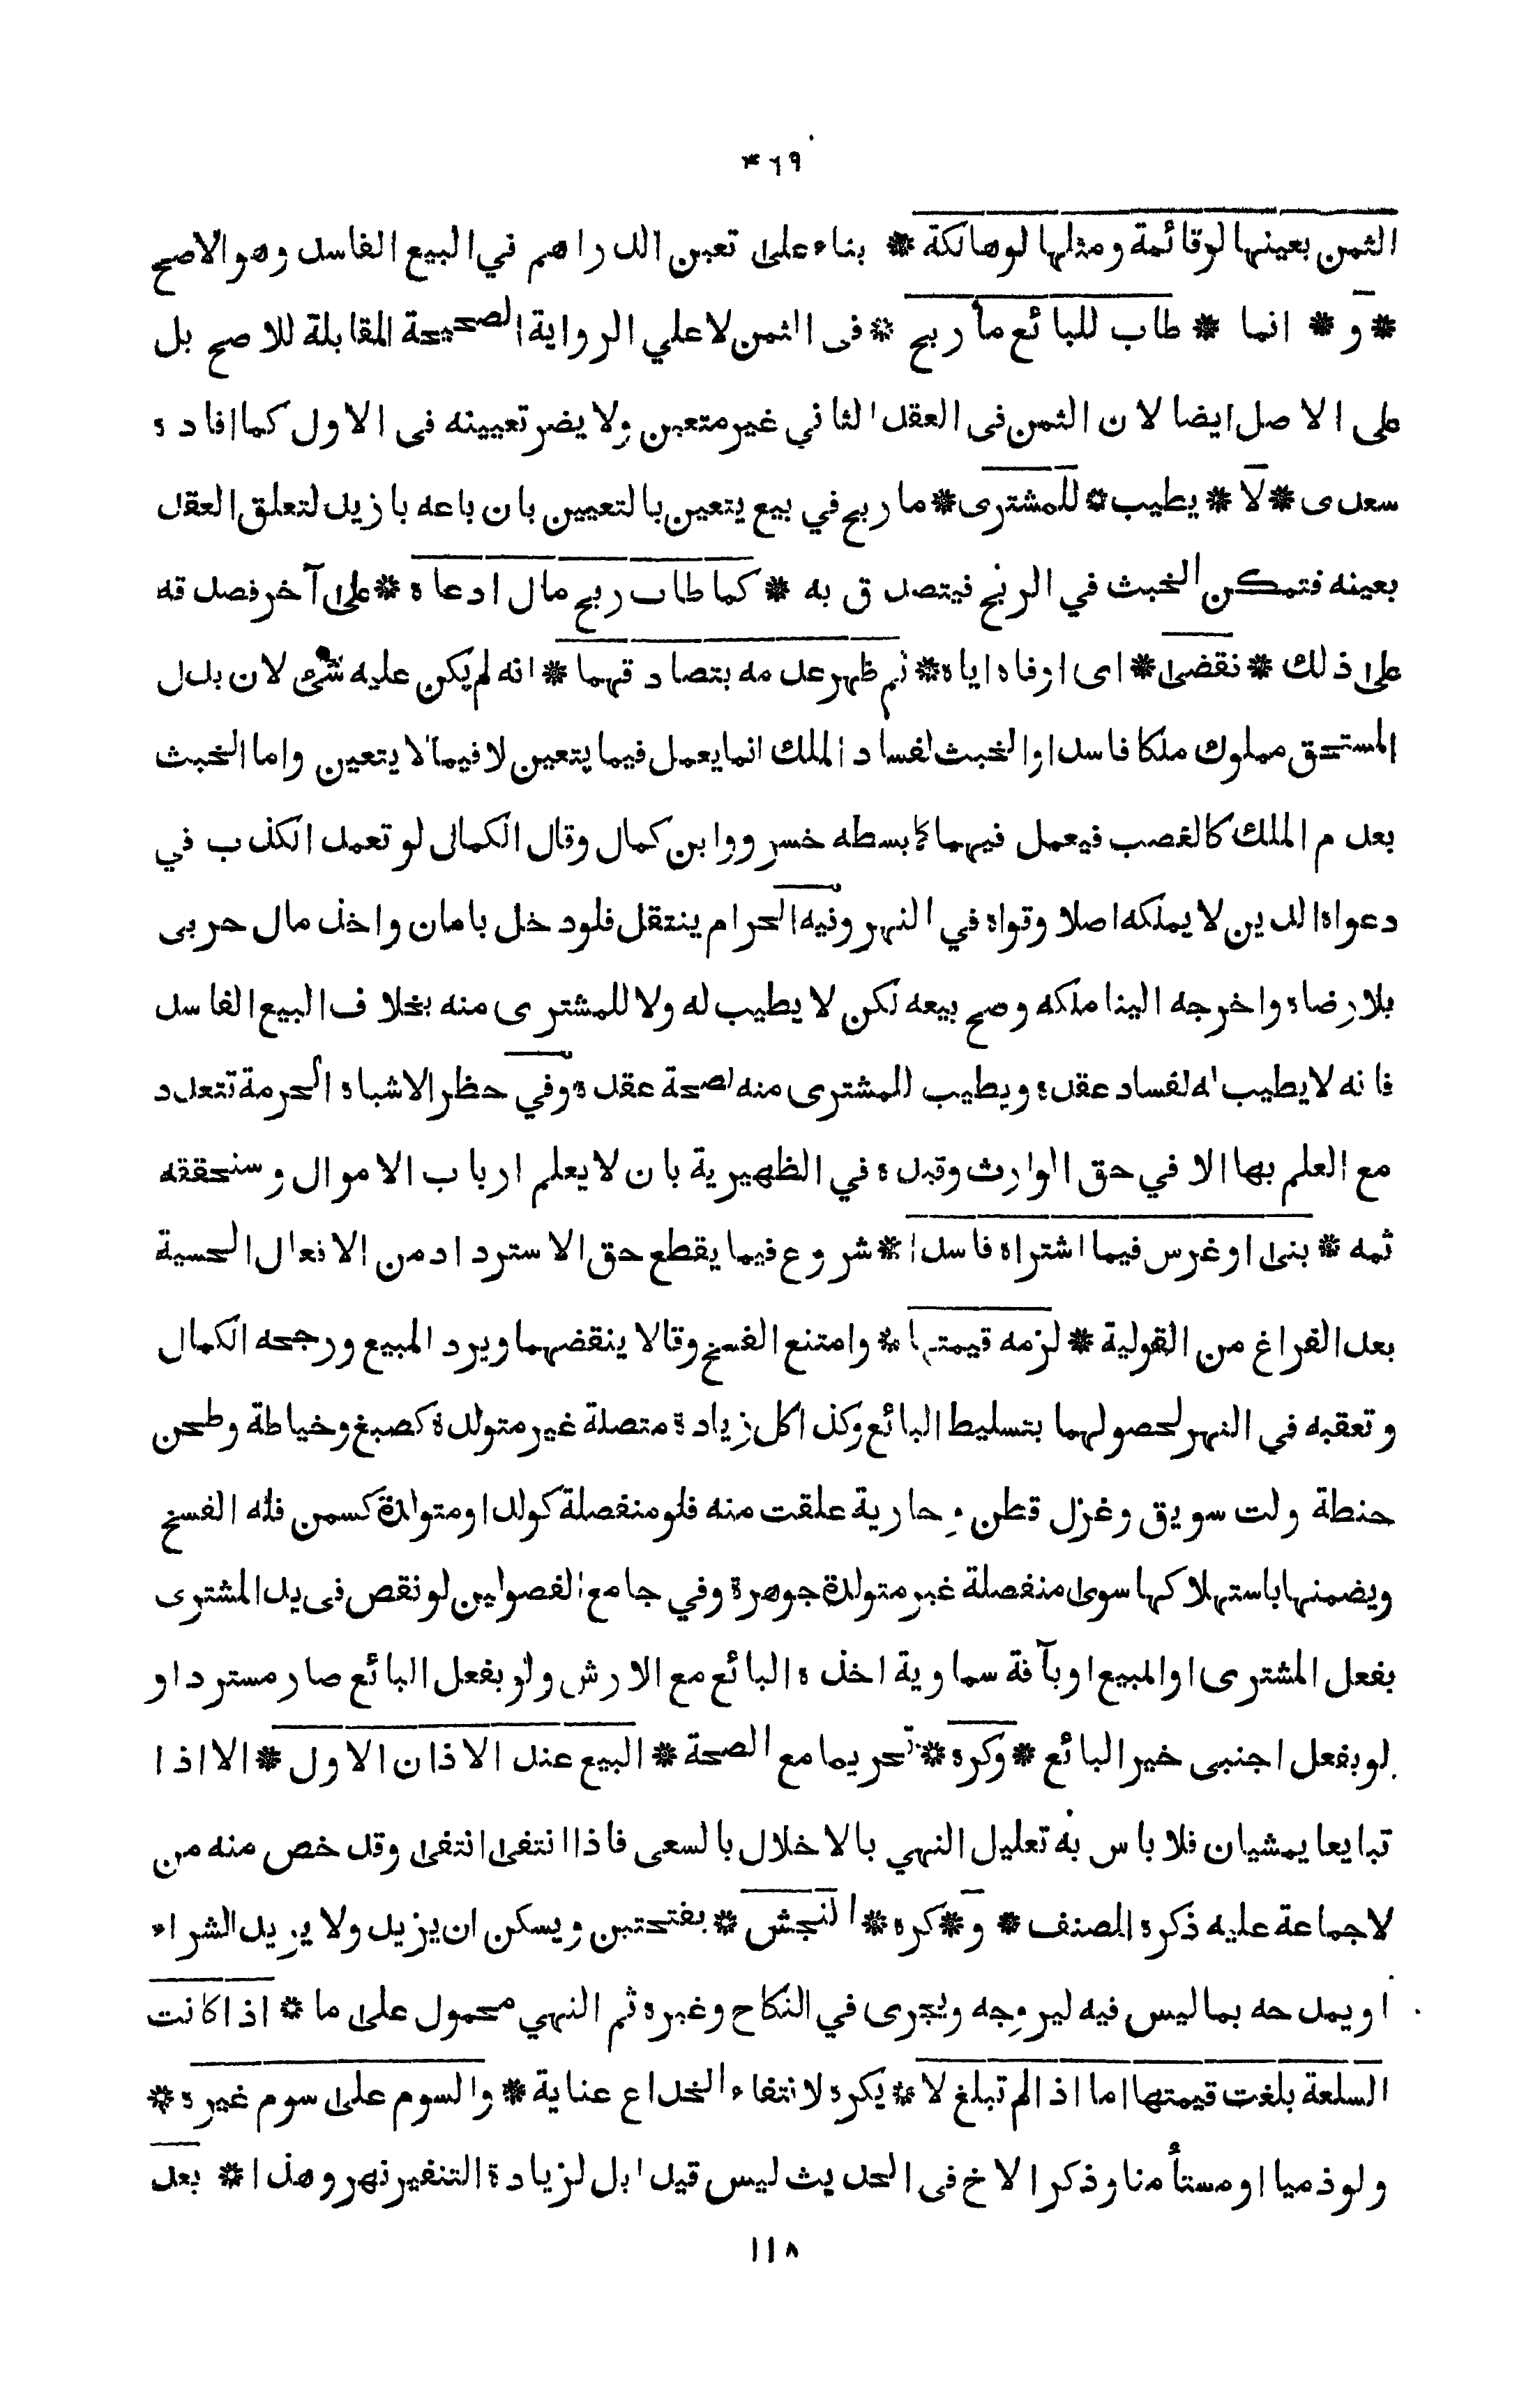 ۴٦٩
الثمن بعينها لوقائمة ومثلها لوهالكة * بناء على تعين الدراهم في البيع الفاسد وهو الاصح
* و * انما * طاب للبائع ما ربح * فى الثمن لا علي الرواية الصحيحة المقابلة للاصح بل
على الاصل ايضا لان الثمن فى العقد الثاني غير متعين ولا يضر تعيينه فى الاول كما افاده
سعدى * لا * يطيب * للمشترى * ما ربح في بيع يتعين بالتعيين بان باعه بازيد لتعلق العقد
بعينه فتمكن الخبث في الربح فيتصدق به * كما طاب ربح مال ادعاه * على آخر فصدقه
على ذلك * نقضى * اى اوفاه اياه * ثم ظهر عدمه بتصادقهما * انه لم يكن عليه شئ لان بدل
المستحق مملوك ملكا فاسدا والخبث لفساد الملك انما يعمل فيما يتعين لا فيما لا يتعين واما الخبث
بعدم الملك كالغصب فيعمل فيهما كما بسطه خسرو وابن كمال وقال الكمال لو تعمد الكذب في
دعواه الدين لا يملكه اصلا وقواه في النهر وفيه الحرام ينتقل فلو دخل بامان واخذ مال حربى
بلا رضاه واخرجه الينا ملكه وصح بيعه لكن لا يطيب له ولا للمشترى منه بخلاف البيع الفاسد
فانه لا يطيب له لفساد عقده ويطيب للمشترى منه لصحة عقده وفي حظر الاشباه الحرمة تتعدد
مع العلم بها الا في حق الوارث وقيده في الظهيرية بان لا يعلم ارباب الاموال وسنحققه
ثمه * بنى او غرس فيما اشتراه فاسدا * شروع فيما يقطع حق الاسترداد من الافعال الحسية
بعد الفراغ من القولية * لزمه قيمتها * وامتنع الفسخ وقالا ينقضهما ويرد المبيع ورجحه الكمال
وتعقبه في النهر لحصولهما بتسليط البائع وكذا كل زيادة متصلة غير متولدة كصبغ وخياطة وطحن
حنطة ولت سويق وغزل قطن وجارية علقت منه فلو منفصلة كولد او متولدة كسمن فله الفسخ
ويضمنها باستهلاكها سوى منفصلة غير متولدة جوهرة وفي جامع الفصولين لو نقص فى يد المشترى
بفعل المشترى او المبيع او بآفة سماوية اخذه البائع مع الارش ولو بفعل البائع صار مستردا و
لو بفعل اجنبى خير البائع * وكره * تحريما مع الصحة * البيع عند الاذان الاول * الا اذا
تبايعا يمشيان فلا باس به تعليل النهي بالاخلال بالسعى فاذا انتفى انتفى وقد خص منه من
لا جماعة عليه ذكره المصنف * و * كره * النجش * بفتحتين ويسكن ان يزيد ولا يريد الشراء
او يمدحه بما ليس فيه ليروجه ويجرى في النكاح وغيره ثم النهي محمول على ما * اذا كانت
السلعة بلغت قيمتها اما اذا لم تبلغ لا * يكره لانتفاء الخداع عناية * والسوم على سوم غيره *
ولو ذميا او مستأمنا وذكر الاخ فى الحديث ليس قيدا بل لزيادة التنفير نهر وهذا * بعد
١١٨